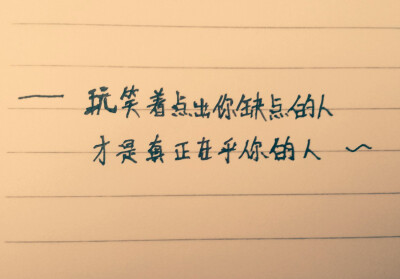 —— 玩笑着点出你缺点的人
才是真正在乎你的人 ~